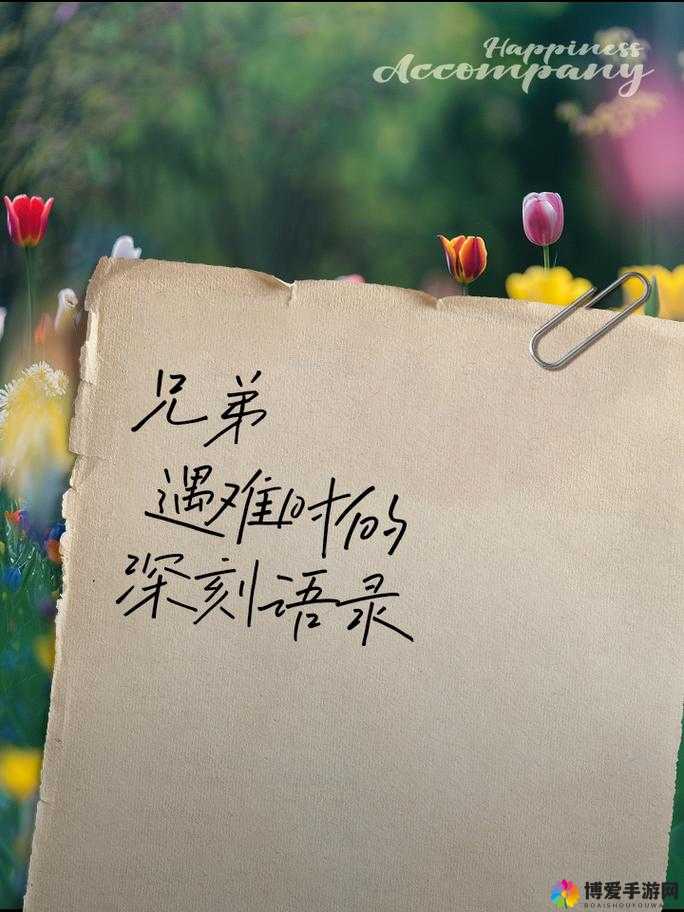 Happiness
Accompany
兄弟
遇难时的
深刻语录
博爱手游网
BOAISHOUYOUWANG